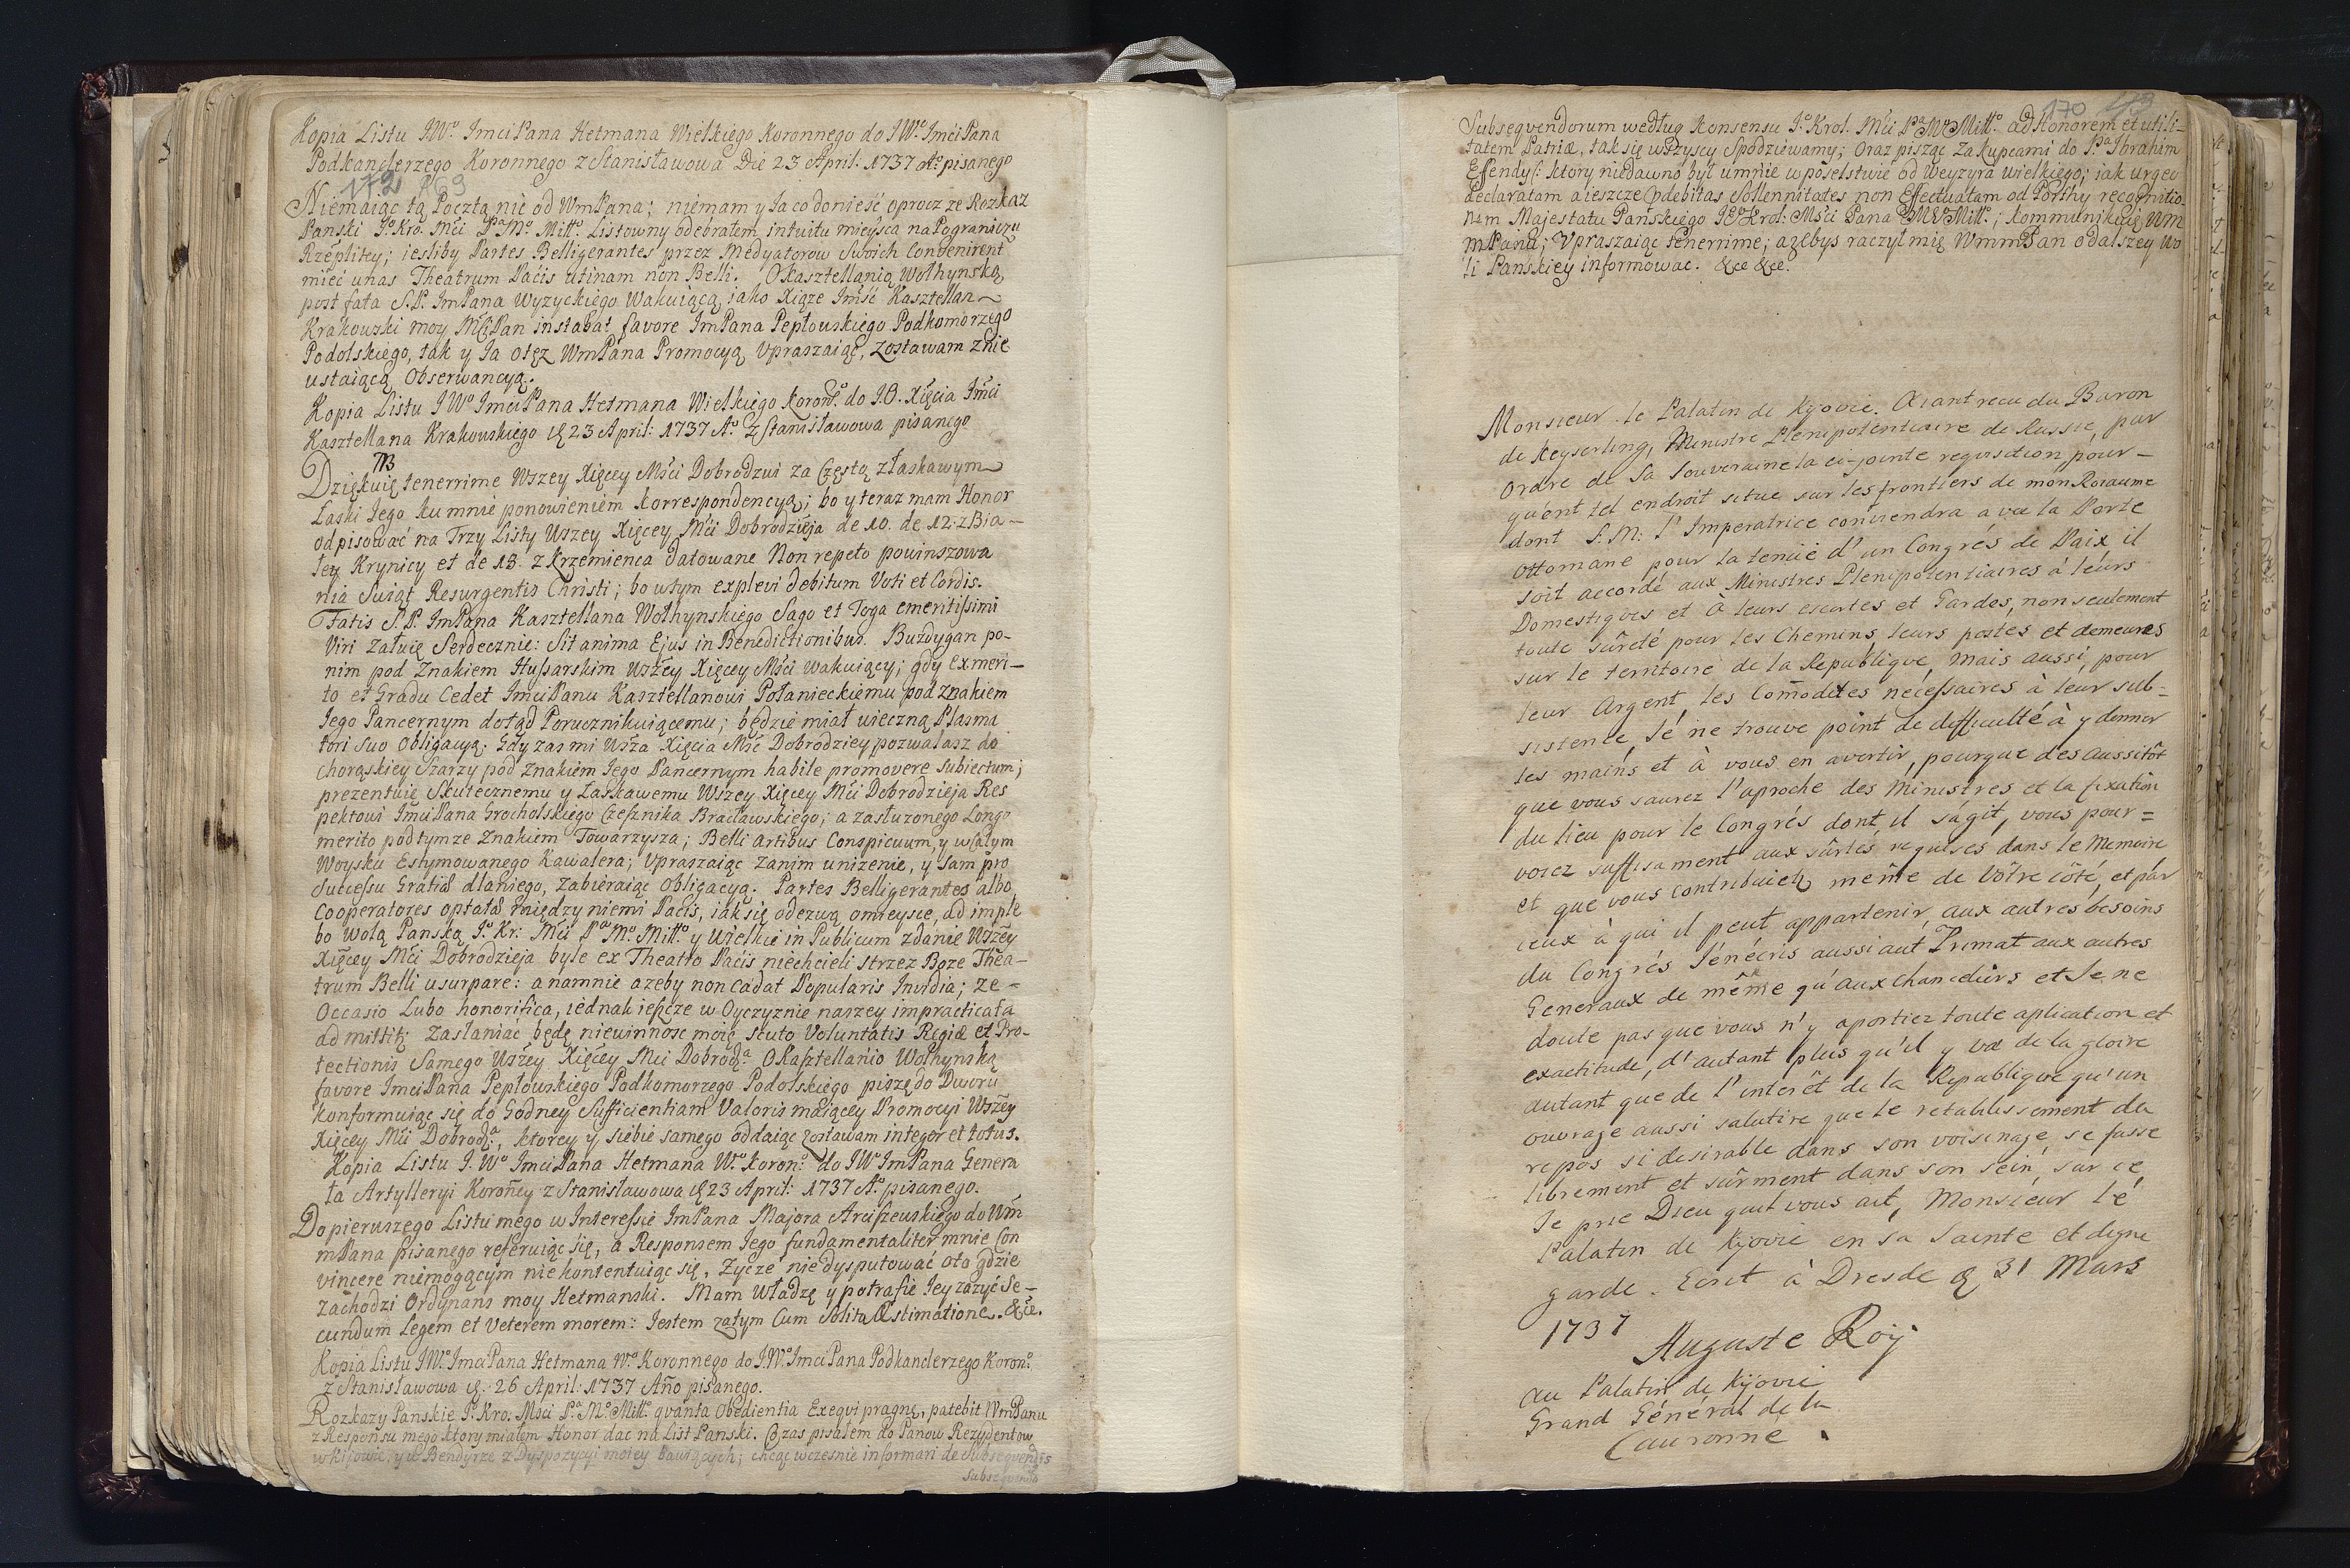 Kopia Listu JWo ImciPana Hetmana Wielkiego Koronnego do JWo ImciPana
Podkanclerzego Koronnego z Stanisławowa Die 23 April. 1737 Ao pisanego
172 169
Niemaiąc tą Pocztą nic od WmPana; niemam y Ia co donieść oprocz ze Rozkaz
Panski Jo Kro. Mći Pa Mo Miłło Listowny odebrałem intuitu mieysca na Pograniczu
Rzeplitey; iesliby Partes Belligerantes przez Medyatorow Swoich Convenirent
mieć unas Theatrum Pacis utinam non Belli. O Kasztellanią Wołhynską
post fata S.P. ImPana Wyzyckiego Wakuiącą, iako Xiąze Imść Kasztellan
Krakowski moy MćiPan instabat favore ImPana Pepłowskiego Podkomorzego
Podolskiego, tak y Ia otęz WmPana Promocyą Upraszaiąc, zostawam z nie
ustaiącą Obserwancyą.
Kopia Listu JWo ImciPana Hetmana Wielkiego Koronno do J.O. Xięcia Imći
Kasztellana Krakowskiego d 23 April: 1737 Ao z Stanisławowa pisanego
Dziękuię tenerrime Wszey Xięcey Mści Dobrodzwi za Częstą z łaskawym
Łaski Jego ku mnie ponowieniem korrespondencyą; bo y teraz mam Honor
odpisować na Trzy Listy Wszey Xięcey Mći Dobrodzieja de 10. de 12. z Bia-
łey Krynicy et de 13. z Krzemienca datowane Non repeto powinszowa
nia Swiąt Resurgentis Christi; bo wtym explevi debitum Voti et Cordis.
Fatis S.P. ImPana Kasztellana Wołhynskiego Sago et Toga emeritissimi
Viri Załuię Serdecznie: Sit anima Ejus in Benedictionibus. Buzdygan po-
nim pod Znakiem Hussarskim Wszey Xięcey Mści wakuiący; gdy ex meri-
to et Gradu Cedet ImciPanu Kasztellanowi Połanieckiemu pod znakiem
Jego Pancernym dotąd Porucznikuiącemu; będzie miał wieczną Plasma
tori suo Obligacyą. Gdy zas mi Wsza Xięcia Mść Dobrodziey pozwalasz do
chorąskiey Szarzy pod Znakiem Jego Pancernym habile promovere subiectum;
prezentuię Skutecznemu y Łaskawemu Wszey Xięcey Mći Dobrodzieja Res
pektowi ImciPana Grocholskiego Czesznika Bracławskiego; a zasłuzonego Longo
merito pod tymze Znakiem Towarzysza; Belli artibus Conspicuum, y w całym
Woysku Estymowanego Kawalera; Upraszaiąc zanim unizenie, y sam pro
Successu Gratiæ dlaniego, zabieraiąc obligacyą. Partes Belligerantes albo
Cooperatores optatæ między niemi Pacis, iak się odezwą omieysce, ad imple
bo wolą Panską Jo Kr: Mći Pa Mo Miłło y wielkie in Publicum zdanie Wszey
Xięcey Mći Dobrodzieja byle ex Theatro Pacis niechcieli strzez Boze Thea-
trum Belli usurpare: a namnie azeby non cadat Popularis Invidia; ze-
Occasio Lubo honorifica, iednak ieszcze w Oyczyznie naszey impracticata
admittitr. Zasłaniać będę niewinnosc moię scuto Voluntatis Regiæ et Pro-
tectionis Samego Wszey Xięcey Mći Dobrodza. O Kasztellanio Wołhynską
favore ImciPana Pepłowskiego Podkomorzego Podolskiego piszę do Dworu
konformuiąc się do Godney Sufficientiam Valoris maiącey Promocyi Wszey
Xięcey Mći Dobrodza, ktorey y siebie samego oddaiąc zostawam integer et totus.
Kopia Listu J.Wo ImciPana Hetmana Wo Korono do JWo ImPana Genera
ła Artylleryi Koronney z Stanisławowa d 23 April: 1737 Ao pisanego.
Do pierwszego Listu mego w Interessie ImPana Majora Arciszewskiego do Wm
mPana pisanego referuiąc się, a Responsem Jego fundamentaliter mnie Con
vincere niemogącym nie kontentuiąc się, Zyczę nie dysputować oto gdzie
zachodzi Ordynans moy Hetmanski. Mam Władzę y potrafię Iey zazyć Se-
cundum Legem et Veterem morem: Jestem zatym Cum solita Æstimatione. &c̃.
Kopia Listu JWo ImciPana Hetmana Wo Koronnego do J.Wo ImciPana Podkanclerzego Korono
z Stanisławowa d. 26 April. 1737 Año pisanego.
Rozkazy Panskie Jo Kro. Mści Pa Mo Miłło qvanta Obedientia Exequi pragnę, patebit WmPanu
z Responsu mego ktory miałem Honor dac na List Panski. Czas pisałem do Panow Rezydentow
w Kijowie, y w Benderze z Dyspozycyi moiey bawiących; chcąc wczesnie informari de Subsequendis
170 173
Subseqvendorum według Konsensu Jo Krol. Mći Pa Mo Miłło ad Honorem et utili-
tatem Patriæ, tak się wszyscy Spodziewamy; Oraz pisząc za kupcami do Pa Ibrahim
Effendys: ktory niedawno był umnie w poselstwie od Weyzyra wielkiego; iak urgeo
declaratam a ieszcze debitas Sollennitates non Effectuatam od Porthy recognitio
nem Majestatu Panskiego Jo Krol: Mści Pana Mo Miłło; kommunikuię Wm
mPana; Upraszaiąc tenerrime; azebys raczył mię WmmPan odalszey wo
li Panskiey informowac. &c̃e &c̃e.
Monsieur le Palatin de Kijovie. Aiant recu du Baron
de Keyserling, Ministre Plenipotentiaire de Russie, par
ordre de Sa Souveraine la ci-jointe requisition pour-
qu'ent tel endroit situe sur les frontiers de mon Roiaume
dont S.M: l'Imperatrice conviendra avec la Porte
Ottomane pour la tenüe d'un Congrés de Paix il
soit accordé aux Ministres Plenipotentiaires á leurs
Domestiqves et à leurs escortes et Gardes, non seulement
toute sûreté pour les Chemins leurs postes et demeures
sur le territoire de la Republique, mais aussi, pour
leur Argent, les Com̃odites nécessaires à leur sub-
sistence, Jé ne trouve point de difficulté à y donner
les mains et à vous en avertir, pourque des aussitôt
que vous saurez l'aproche des Ministres et la fixation
du lieu pour le Congrés dont il s'agit, vous pour=
voiez suffisament aux sûrtés requises dans le Memoire
et que vous contribuiez même de Vôtre côté, et par
ceux à qui il peut appartenir, aux autres besoins
du Congrés J'énécris aussi aut Primat aux autres
Generaux de même qu'aux chanceliers et Je ne
doute pas que vous n'y aportiez toute aplication et
exactitude, d'autant plus qu'il y va de la gloire
autant que de l'interêt de la Republique qu'un
ouvrage aussi salutire que le retablissement du
repos si desirable dans son voisinage, se fasse
librement et sûrment dans son sein, sur ce
Je prie Dieu quil vous ait, Monsieur le
Palatin de Kijovie en sa Sainte et digne
garde. Ecrit à Dresde d 31 Mars
1737
Auguste Roÿ
au Palatin de Kijovie
Grand Général de la
Couronne.